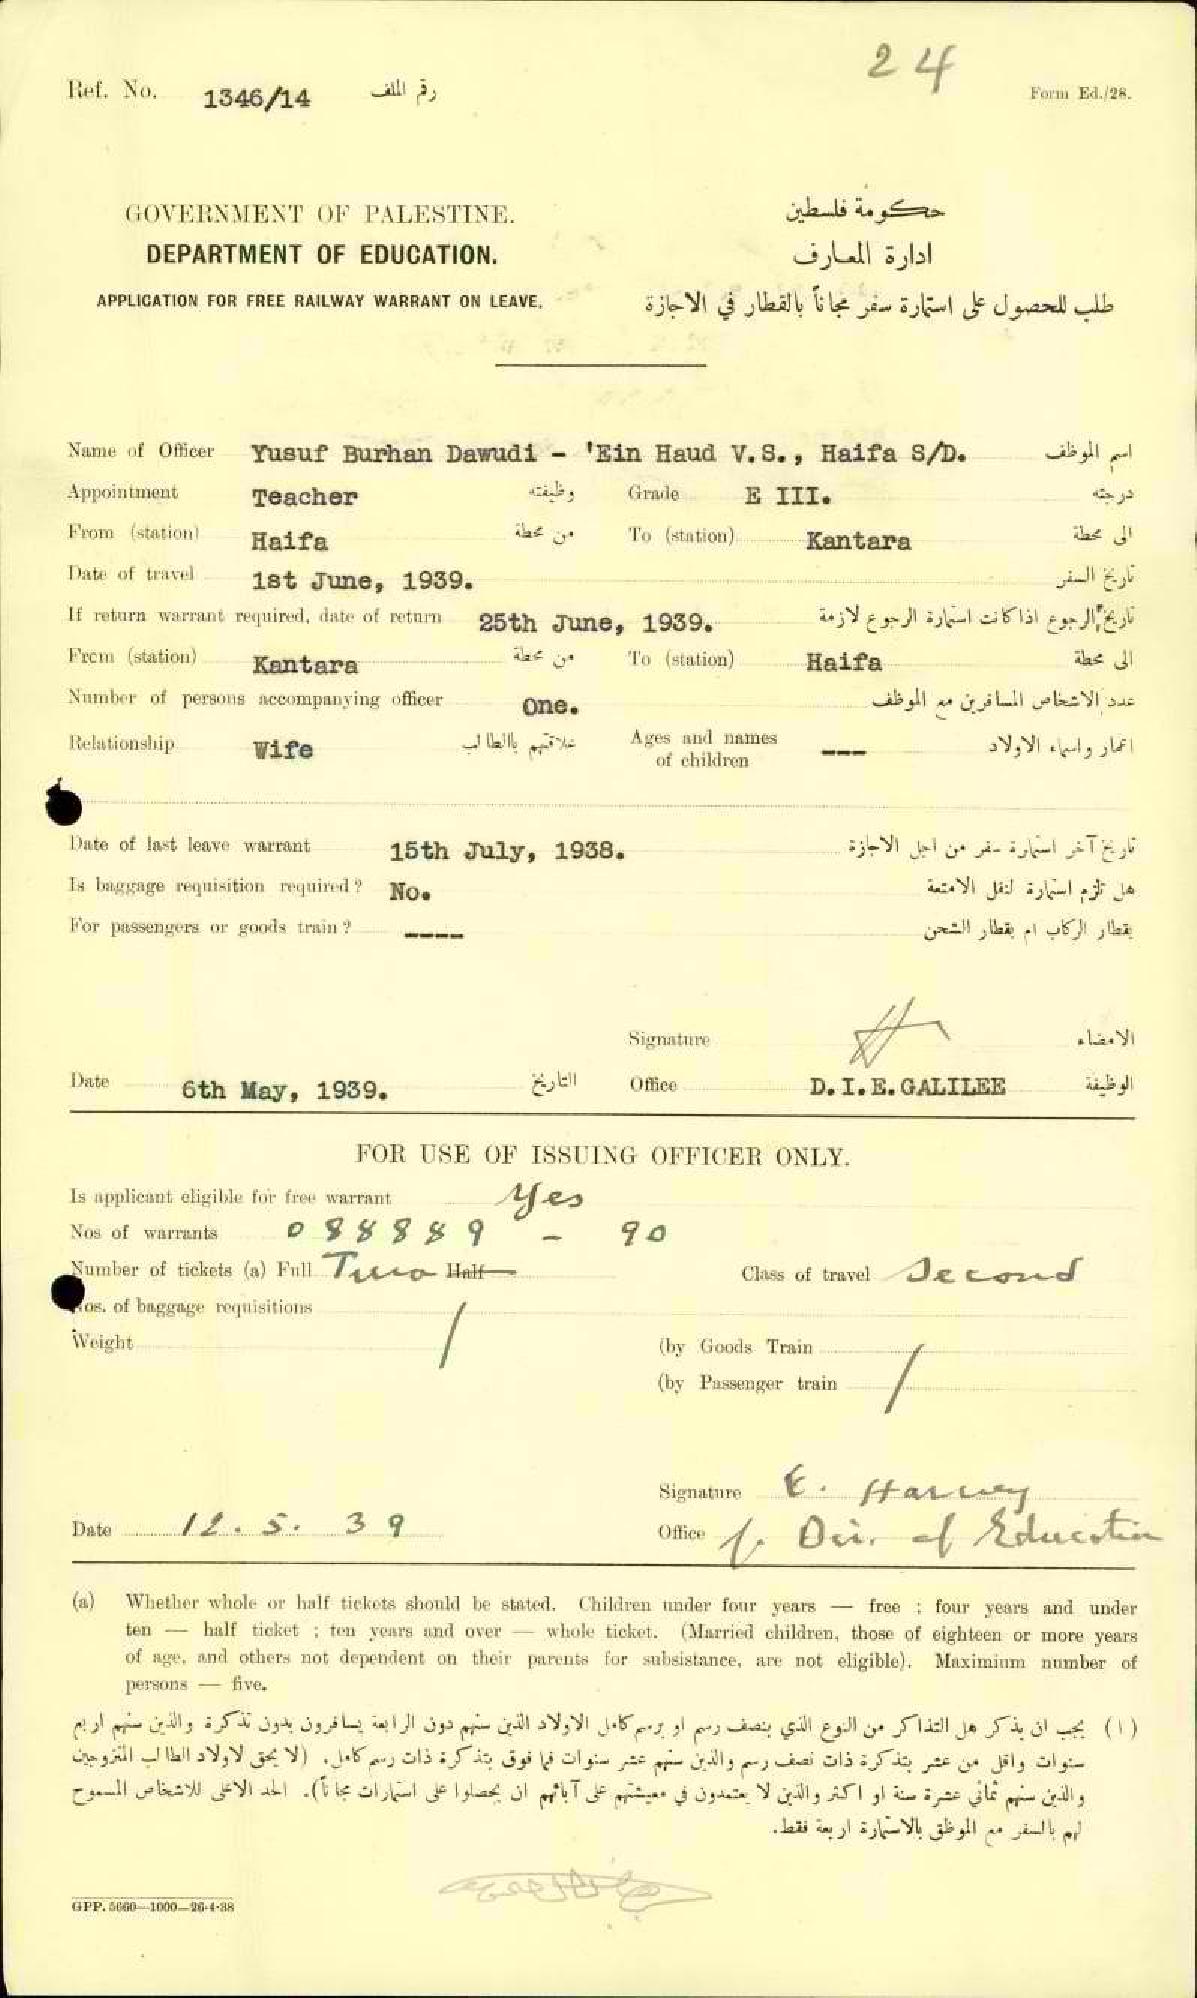 24
Ref. No. 1346/14 رقم الملف
Form Ed./28.
GOVERNMENT OF PALESTINE. حكومة فلسطين
DEPARTMENT OF EDUCATION. ادارة المعارف
APPLICATION FOR FREE RAILWAY WARRANT ON LEAVE. طلب للحصول على استمارة سفر مجاناً بالقطار في الاجازة
Name of Officer Yusuf Burhan Dawudi - 'Ein Haud V.S., Haifa S/D. اسم الموظف
Appointment Teacher وظيفته Grade E III. درجته
From (station) Haifa من محطة To (station) Kantara الى محطة
Date of travel 1st June, 1939. تاريخ السفر
If return warrant required, date of return 25th June, 1939. تاريخ الرجوع اذا كانت استمارة الرجوع لازمة
From (station) Kantara من محطة To (station) Haifa الى محطة
Number of persons accompanying officer One. عدد الاشخاص المسافرين مع الموظف
Relationship Wife علاقتهم بالطالب Ages and names of children --- اعمار واسماء الاولاد
Date of last leave warrant 15th July, 1938. تاريخ آخر استمارة سفر من اجل الاجازة
Is baggage requisition required? No. هل تلزم استمارة لنقل الامتعة
For passengers or goods train? ---- بقطار الركاب ام بقطار الشحن
Signature الامضاء
Date 6th May, 1939. التاريخ Office D.I.E.GALILEE الوظيفة
FOR USE OF ISSUING OFFICER ONLY.
Is applicant eligible for free warrant Yes
Nos of warrants 088889 - 90
Number of tickets (a) Full Two Half Class of travel Second
Nos. of baggage requisitions /
Weight (by Goods Train /
(by Passenger train
Signature E. Harvey
Date 12.5.39 Office f. Dir. of Education
(a) Whether whole or half tickets should be stated. Children under four years — free ; four years and under
ten — half ticket ; ten years and over — whole ticket. (Married children, those of eighteen or more years
of age, and others not dependent on their parents for subsistance, are not eligible). Maximium number of
persons — five.
(١) يجب ان يذكر هل التذاكر من النوع الذي بنصف رسم او برسم كامل الاولاد الذين سنهم دون الرابعة يسافرون بدون تذكرة والذين سنهم اربع
سنوات واقل من عشر بتذكرة ذات نصف رسم والذين سنهم عشر سنوات فما فوق بتذكرة ذات رسم كامل. (لا يحق لاولاد الطالب المتزوجين
والذين سنهم ثماني عشرة سنة او اكثر والذين لا يعتمدون في معيشتهم على آبائهم ان يحصلوا على استمارات مجاناً). الحد الاعلى للاشخاص المسموح
لهم بالسفر مع الموظق بالاستمارة اربعة فقط.
GPP. 5660—1000—26-4-38